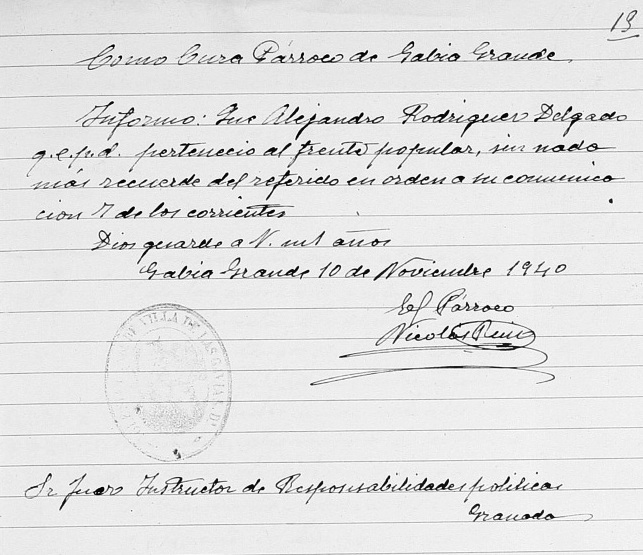 13
Como Cura Párroco de Gabia Grande
Informo: Que Alejandro Rodriguez Delgado
q.e.p.d. perteneció al frente popular, sin nada
más recuerde del referido en orden a su comunica
cion 7 de los corrientes
Dios guarde a V. mil años
Gabia Grande 10 de Noviembre 1940
El Párroco
Nicolás Ruiz
Sr Juez Instructor de Responsabilidades politicas
Granada